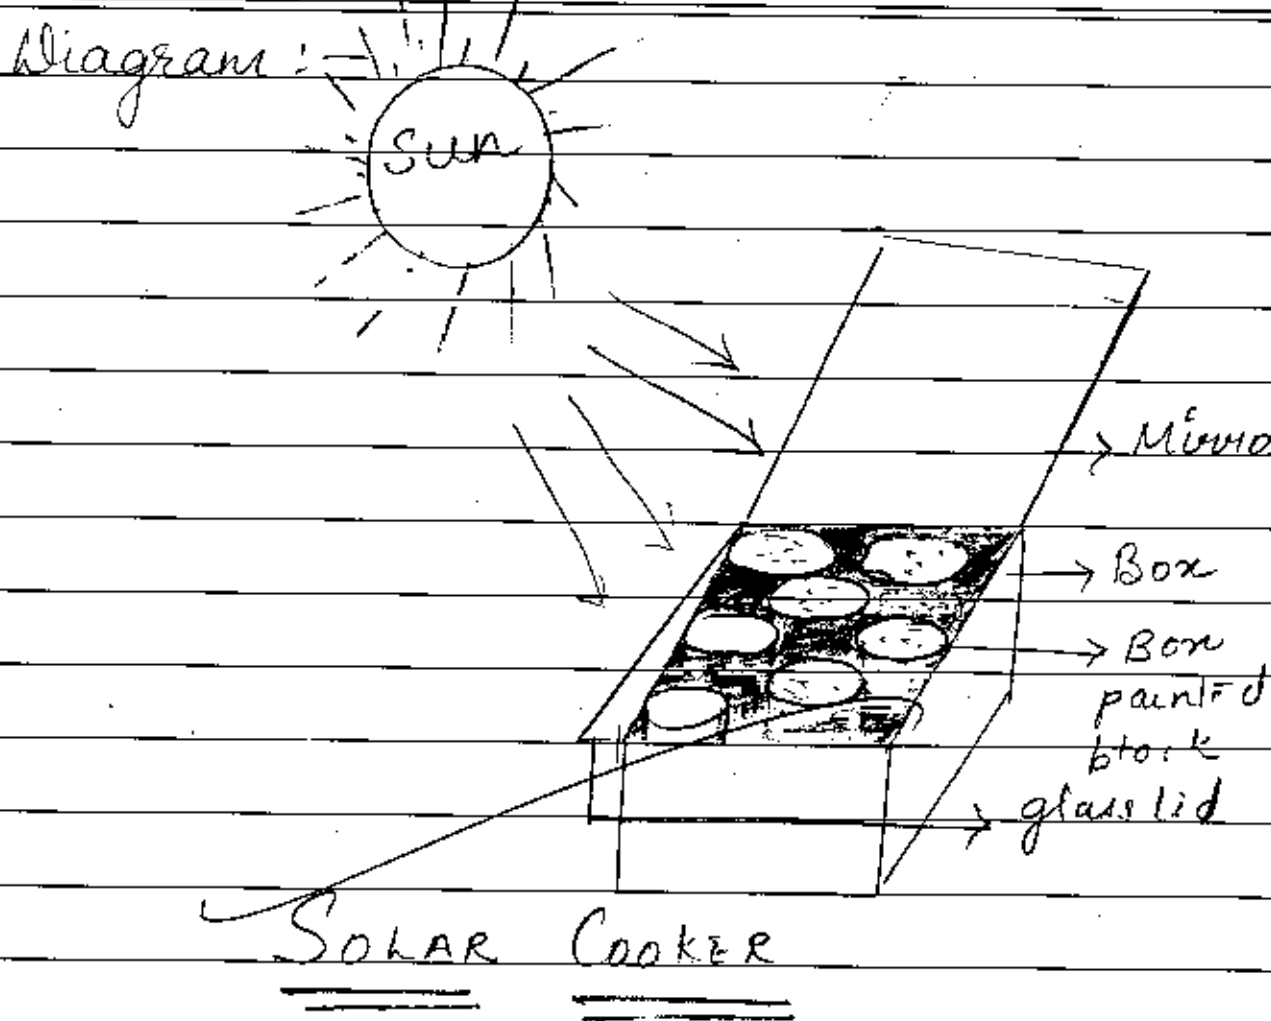 Diagram :-
Sun
Mirro
Box
Box
painted
black
glass lid
SOLAR COOKER